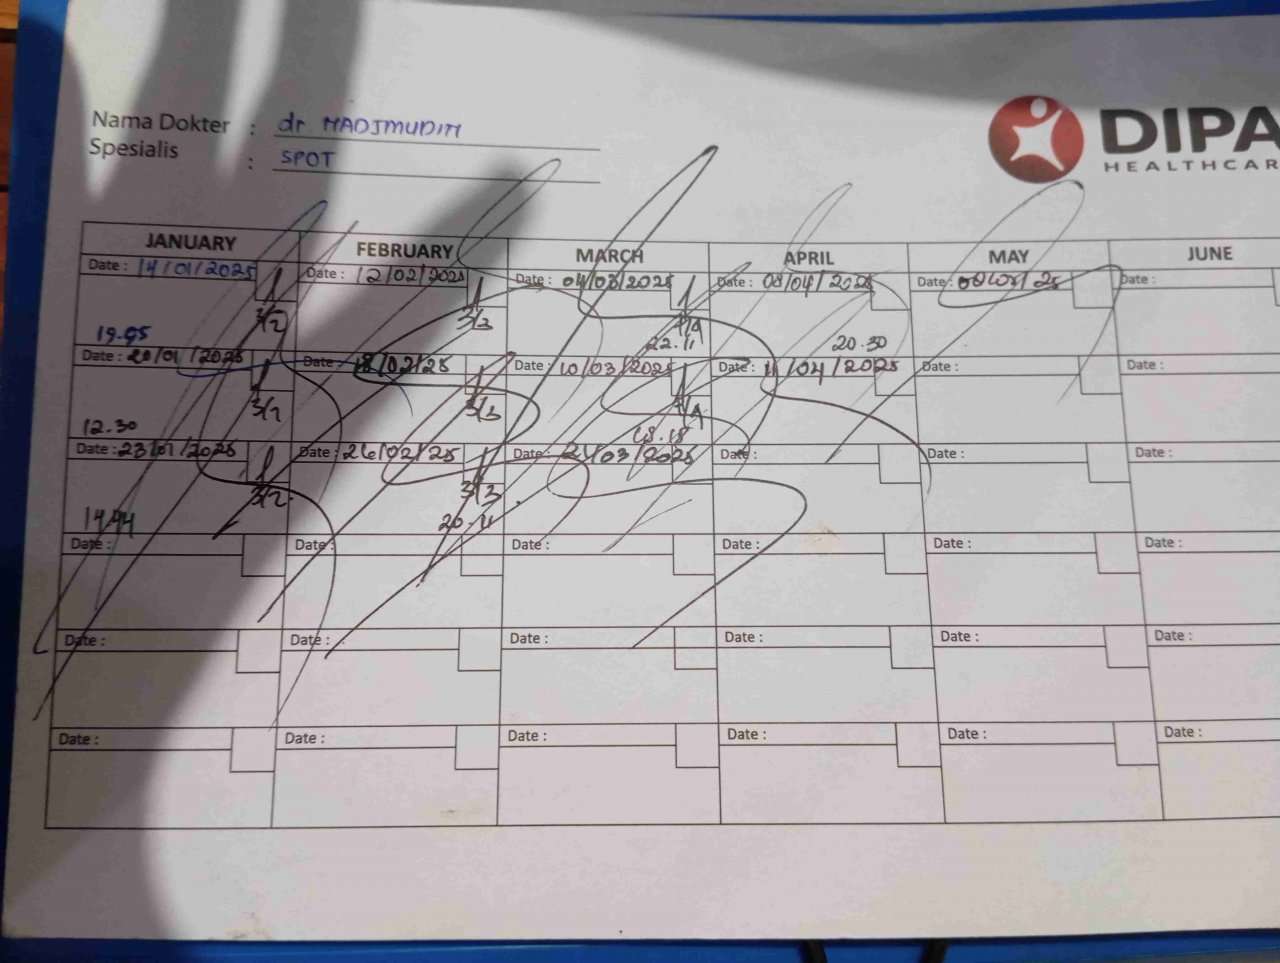 Nama Dokter : dr MADJMUDIM
Spesialis : SPOT
DIPA
HEALTHCAR
JANUARY FEBRUARY MARCH APRIL MAY JUNE
Date : 14/01/2025 Date : 12/02/2025 Date : 04/03/2025 Date : 08/04/2025 Date : /25 Date :
3/2 3/3
19.05 22.11 20.30
Date : 20/01/2025 Date : 18/02/25 Date : 10/03/2025 Date : 11/04/2025 Date : Date :
3/2 3/3
12.30 18.18
Date : 23/01/2025 Date : 26/02/25 Date : 24/03/2025 Date : Date : Date :
3/2 3/3
14.44 20.11
Date : Date : Date : Date : Date : Date :
Date : Date : Date : Date : Date : Date :
Date : Date : Date : Date : Date : Date :